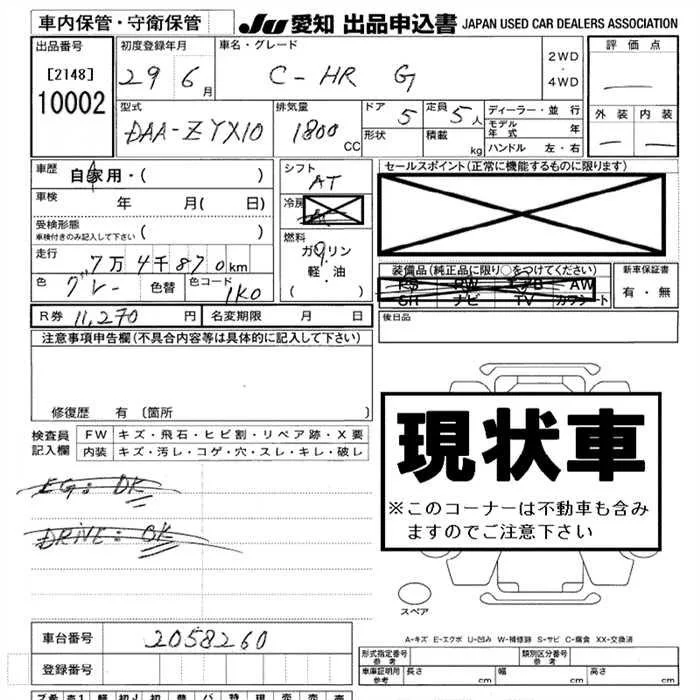 車内保管・守衛保管 JU 愛知 出品申込書 JAPAN USED CAR DEALERS ASSOCIATION
出品番号 [2148] 10002
初度登録年月 29 6月
車名・グレード C-HR G
2WD・4WD
評価点
外装 内装
型式 DAA-ZYX10
排気量 1800cc
ドア 5 形状
定員 5人 積載 kg
ディーラー・並行
モデル年式 年
ハンドル 左・右
車歴 自家用・( )
車検 年 月( 日)
受検形態 車検付きのみ記入して下さい ( )
走行 7万4千870km
色 グレー 色替 色コード 1K0
シフト AT
冷房
燃料 ガソリン 軽・油 ( )
セールスポイント(正常に機能するものに限ります)
装備品(純正品に限り○をつけてください)
PS PW AW
SH ナビ TV カワシート
新車保証書 有・無
R券 11,270円 名変期限 月 日
後日品
注意事項申告欄(不具合内容等は具体的に記入して下さい)
修復歴 有〔箇所 〕
検査員記入欄
FW キズ・飛石・ヒビ割・リペア跡・X要
内装 キズ・汚レ・コゲ・穴・スレ・キレ・破レ
EG: OK
DRIVE: OK
現状車
※このコーナーは不動車も含みますのでご注意下さい
スペア
A-キズ E-エクボ U-凹み W-補修跡 S-サビ C-腐食 XX-交換済
車台番号 2058260
登録番号
形式指定番号 参考
類別区分番号 参考
車庫証明用 参考 長さ cm 幅 cm 高さ cm